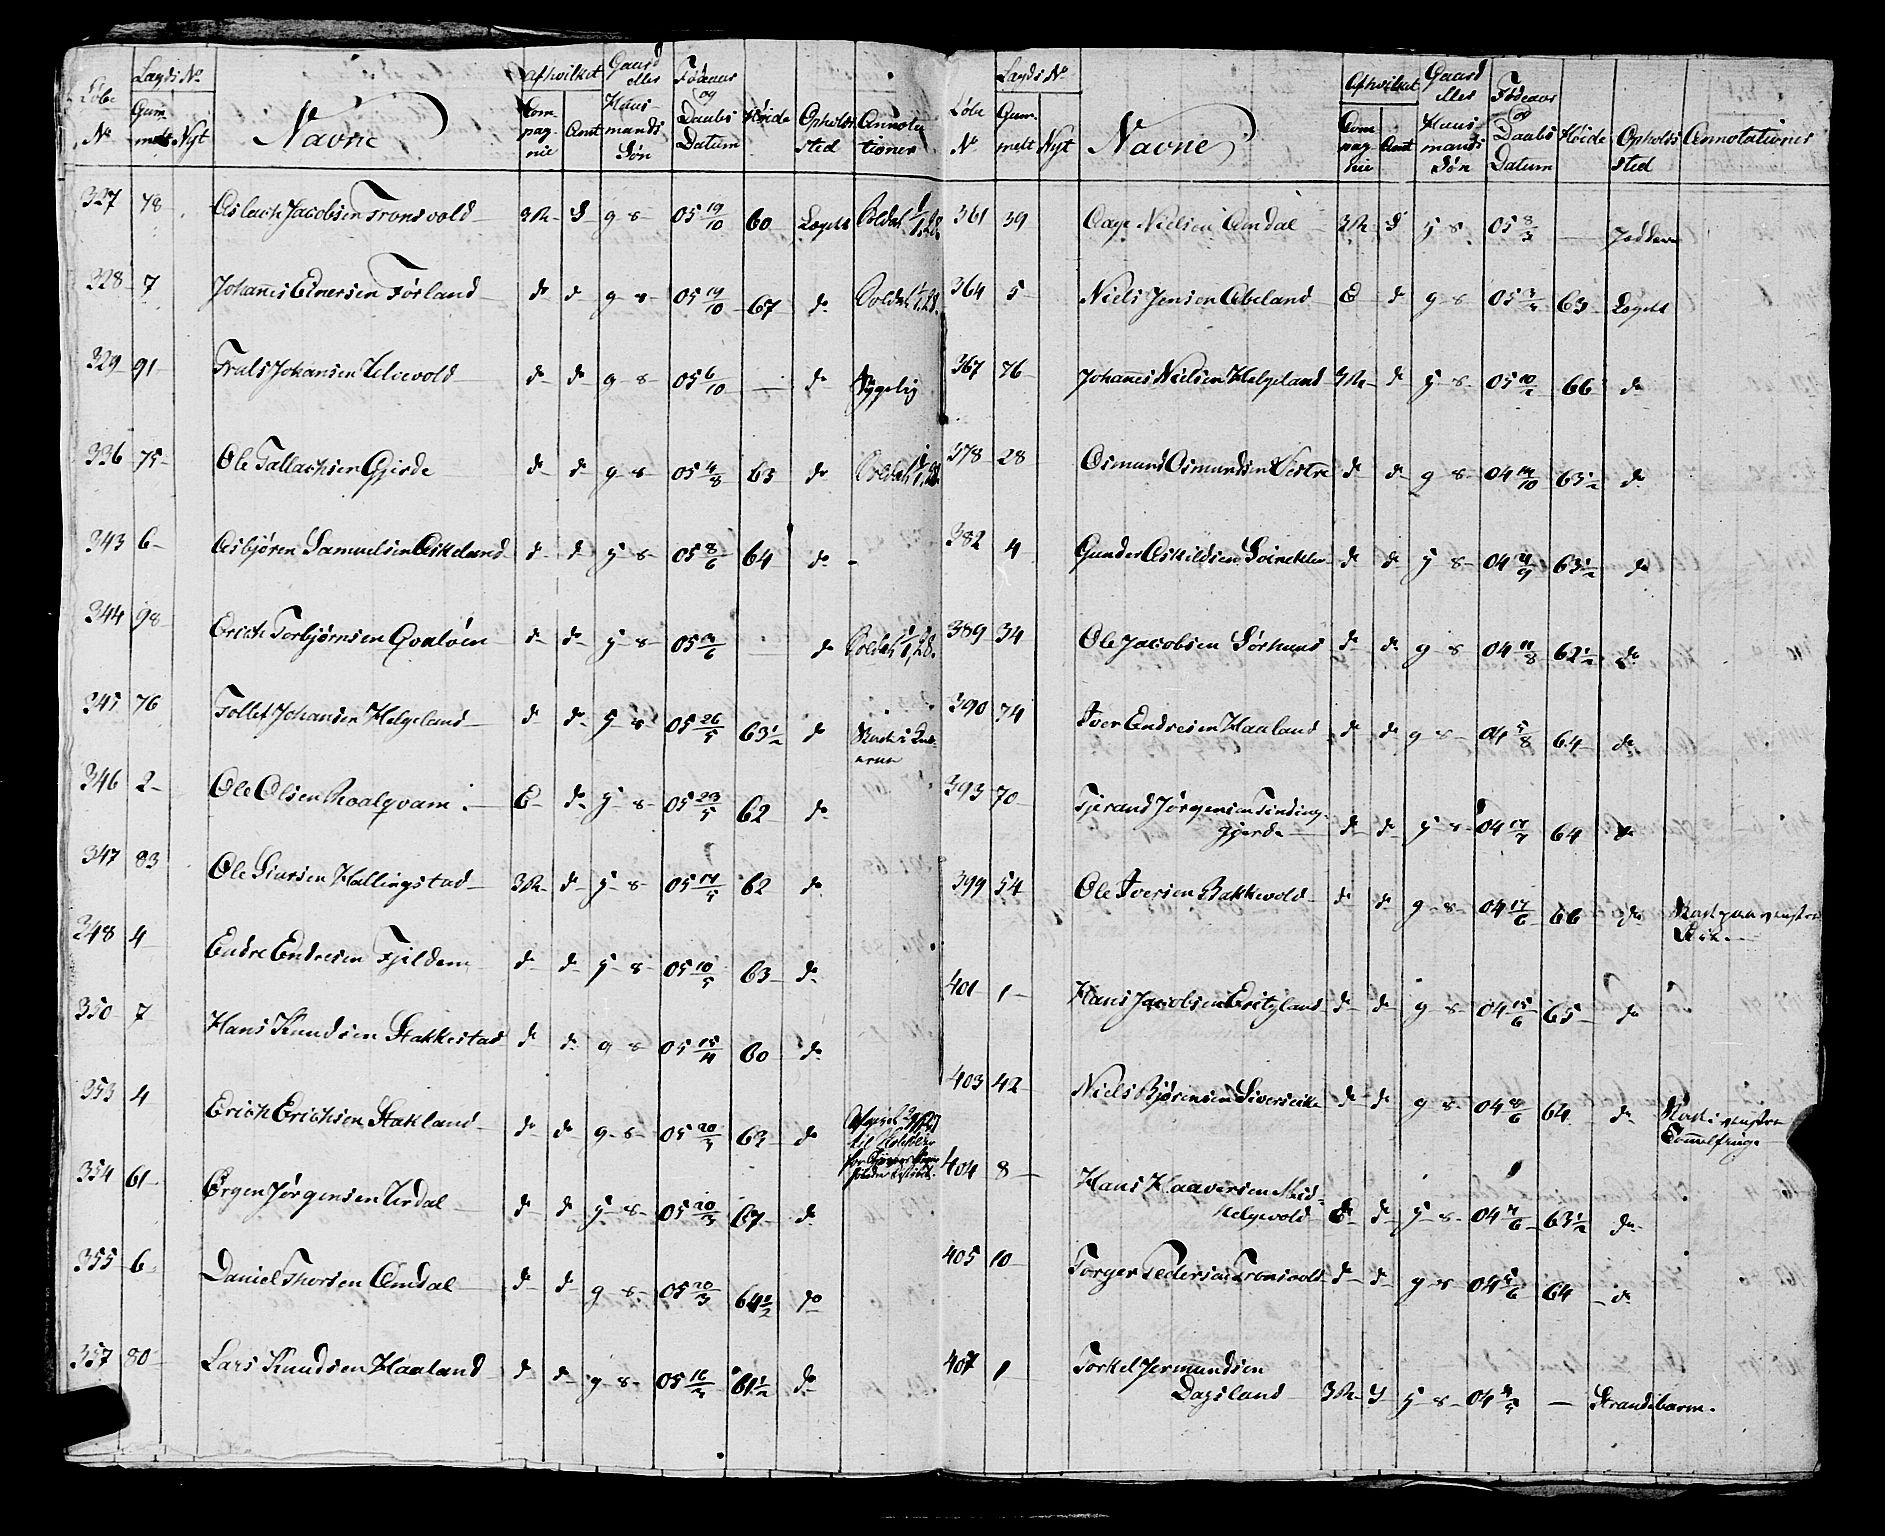 Løbe N° Lægds N° Gam melt Nyt Navne Afhvilket Com pag nie Amt Gaard eller Huus- mands Søn Fødeaar og Daabs Datum Høide Opholds sted Annota tioner
327 78 Aslach Jacobsen Tronsvold 3R S g s 05 19/10 60 Lægdet Soldat 1/1 28
328 7 Johanes Einersen Førland d d g s 05 14/10 67 do Soldat 1/1 28.
329 91 Truls Johansen Helvevold d d g s 05 6/10 — do Sygelig
336 75 Ole Tallachsen Gjerde d d g s 05 4/8 63 do Soldat 1/1 28
343 6 Asbjøren Samuelsen Askeland d d g s 05 8/6 64 do
344 98 Erich Torbjørnsen Qvaløen d d g s 05 /6 — do Soldat 1/1 28.
345 76 Tollef Johansen Helgeland d d g s 05 26/5 63 1/2 do
346 2 Ole Olsen Roalqvam E d g s 05 23/5 62 do
347 83 Ole Siursen Hallingstad 3R d g s 05 14/5 62 do
348 4 Endre Endresen Fjildem d d g s 05 10/5 63 do
350 7 Hans Knudsen Stakkestad d d g s 05 15/4 60 do
353 4 Erich Erichsen Stakland d d g s 05 20/3 63 do
354 61 Ørgen Jørgensen Urdal d d g s 05 20/3 67 do
355 6 Daniel Thorsen Amdal d d g s 05 20/3 64 1/2 do
357 80 Lars Knudsen Haaland d d g s 05 16/ 61 1/2 do
Løbe N° Lægds N° Gam- melt Nyt Navne Afhvilket Com pag nie Amt Gaard eller Huus mands Søn Fødeaar og Daabs Datum Høide Opholds sted Annotationer
361 39 Aage Nielsen Amdal 3R S g s 05 8/3 — Jedderen
364 5 Niels Jensen Abeland E d g s 05 3/ 63 Lægdet
367 76 Johanes Nielsen Helgeland 3R d g s 05 10/2 66 do
378 28 Osmund Osmundsen Vestre d d g s 04 14/10 63 1/2 do
382 4 Gunder Askildsen d d g s 04 /9 63 1/2 do
389 34 Ole Jacobsen Sørhuus d d g s 04 11/8 62 1/2 do
390 74 Iver Endresen Haaland d d g s 04 5/8 64 do
393 70 Tjerand Jørgensen Tinding-
gjerde d d g s 04 17/7 64 do
399 54 Ole Iversen Bakkevold d d g s 04 17/6 66 do Knast paa venstre
401 1 Hans Jacobsen Eritzland d d g s 04 15/6 65 do
403 42 Niels Bjørensen Siversvike d d g s 04 8/6 64 do Knast i venstre
Tommelfinge
404 8 Hans Haaversen Mid-
helgevold E d g s 04 /6 63 1/2 do
405 10 Torger Pedersen Tronsvold d d g s 04 5/6 64 do
407 1 Torkel Jermundsen
Dagsland 3R S g s 04 /5 — Strandebarm.